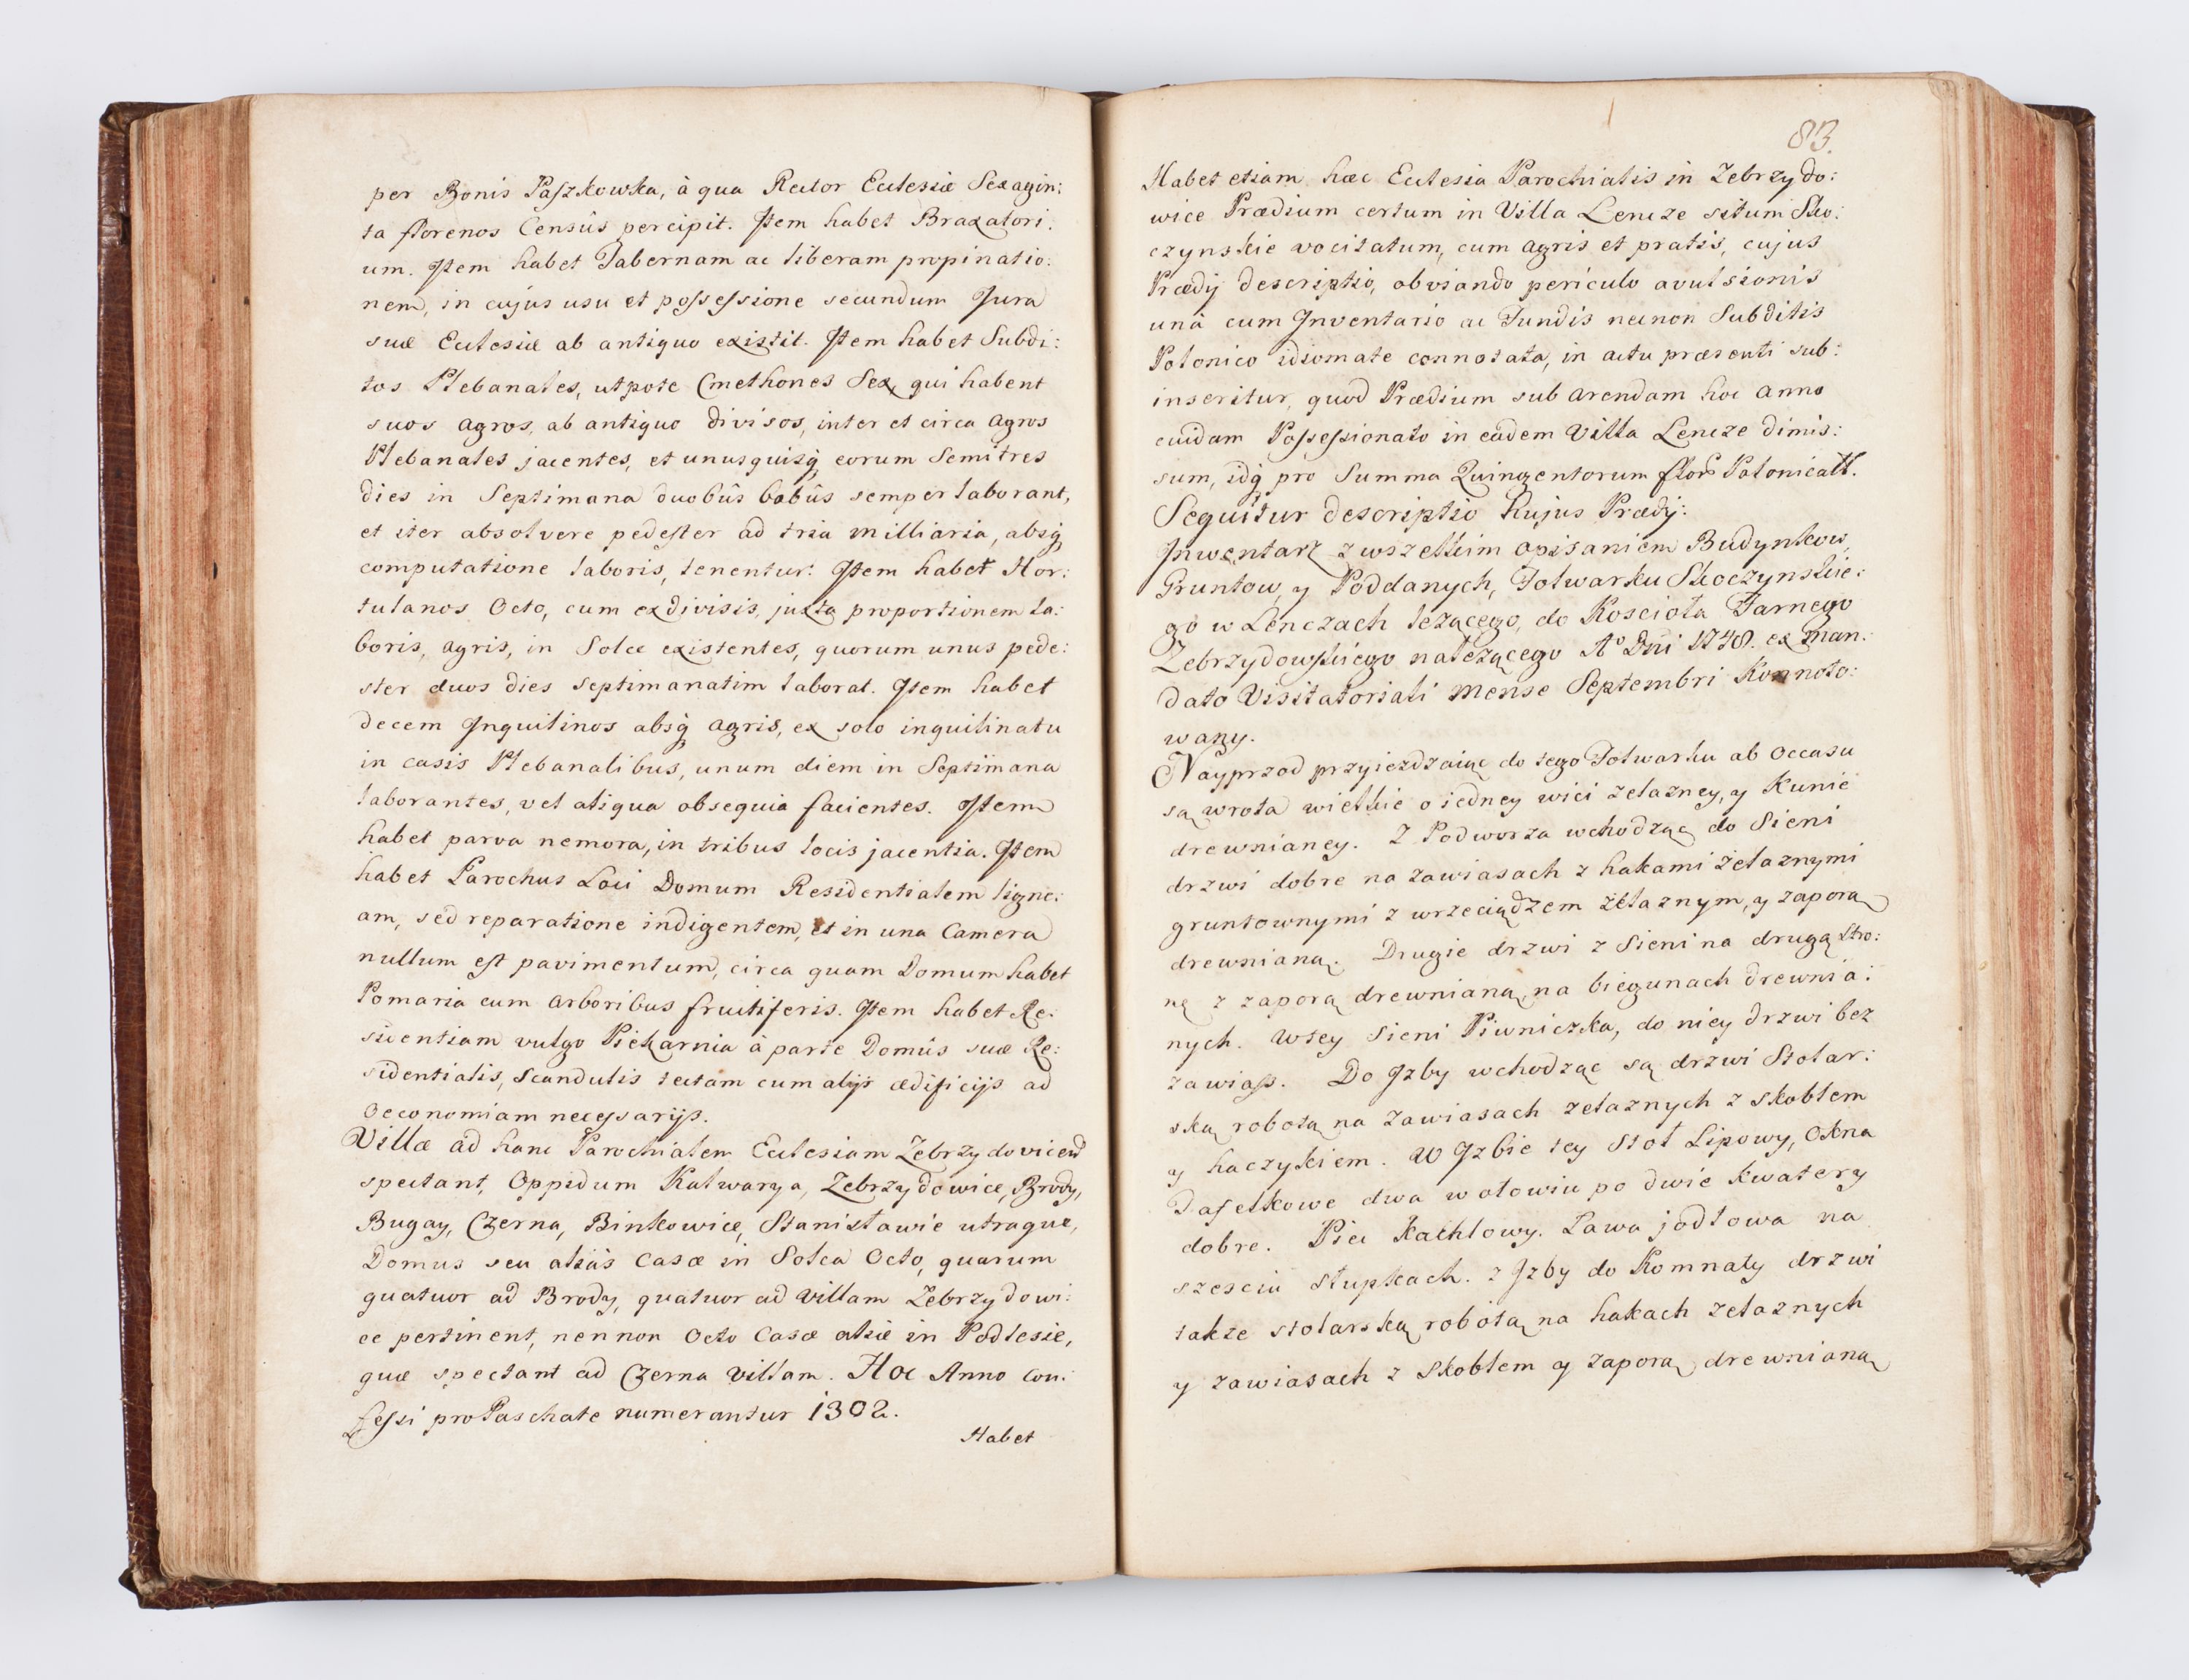 per Bonis Paszkowka, à qua Rector Ecclesiæ Sexagin:
ta florenos Censûs percipit. Item habet Braxatori:
um. Item habet Tabernam ac liberam propinatio:
nem, in cujus usu et possessione secundum Jura
suæ Ecclesiæ ab antiquo existit. Item habet Subdi:
tos Plebanales, utpote Cmethones Sex, qui habent
suos agros, ab antiquo divisos, inter et circa agros
Plebanales jacentes, et unusquisq eorum Semitres
dies in Septimana duobûs bobûs semper laborant,
et iter absolvere pedester ad tria milliaria, absq
computatione laboris, tenentur. Item habet Hor:
tulanos Octo, cum exdivisis, juxta proportionem la:
boris, agris, in Solca existentes, quorum unus pede:
ster duos dies septimanatim laborat. Item habet
decem Inquilinos absq agris, ex solo inquilinatu
in casis Plebanalibus, unum diem in Septimana
laborantes, vel aliqua obsequia facientes. Item
habet parva nemora, in tribus locis jacentia. Item
habet Parochus Loci Domum Residentialem ligne:
am, sed reparatione indigentem, et in una Camera
nullum est pavimentum, circa quam Domum habet
Pomaria cum arboribus fructiferis. Item habet Re:
sidentiam vulgo Piekarnia à parte Domûs suæ Re:
sidentialis, Scandulis tectam cum alijs ædificijs ad
Oeconomiam necessarijs.
Villæ ad hanc Parochialem Ecclesiam Zebrzydovicen
spectant, Oppidum Kalwarya, Zebrzydowice, Brody,
Bugay, Czerna, Binkowice, Stanisławie utraque,
Domus seu aliàs Casæ in Solca Octo, quarum
quatuor ad Brody, quatuor ad Villam Zebrzydowi:
ce pertinent, nennon Octo Casæ aliæ in Podlesie,
quæ spectant ad Czerna Villam. Hoc Anno con:
fessi pro Paschate numerantur 1302.
Habet
83.
Habet etiam hæc Ecclesia Parochialis in Zebrzydo:
wice Prædium certum in Villa Lencze situm Sko:
czynskie vocitatum, cum agris et pratis, cujus
Prædij descriptio, obviando periculo avulsionis
unà cum Inventario ac Fundis necnon Subditis
Polonico idiomate connotata, in actu præsenti sub:
inseritur, quod Prædium sub arendam hoc anno
cuidam Possessionato in eadem Villa Lencze dimis:
sum, idq pro Summa Quingentorum flor Polonicall.
Sequitur descriptio hujus Prædij:
Inwentarz z wszelkim opisaniem Budynkow,
Gruntow, y Poddanych, Folwarku Skoczynskie:
go w Lenczach leżącego, do Kosciola Farnego
Zebrzydowskiego należącego Aº Dni 1748. ex man:
dato Visitatoriali mense Septembri Konnoto:
wany.
Nayprzod przyiezdzaiąc do tego Folwarku ab Occasu
są wrota wielkie o iedney wici zelazney, y Kunie
drewnianey. Z Podworza wchodząc do Sieni
drzwi dobre na zawiasach z hakami żelaznymi
gruntownymi z wrzeciądzem żelaznym, y zaporą
drewnianą. Drugie drzwi z Sieni na drugą stro:
nę z zaporą drewnianą, na biegunach drewnia:
nych. W tey Sieni Piwniczka, do niey drzwi bez
zawiass. Do Izby wchodząc są drzwi Stolar:
ską robotą na zawiasach zelaznych z skoblem
y haczykiem. W Izbie tey Stoł Lipowy, Okna
Tafelkowe dwa w ołowiu po dwie kwatery
dobre. Piec Kachlowy. Lawa jodłowa na
szesciu słupkach. z Izby do Komnaty drzwi
także stolarską robotą na hakach zelaznych
y zawiasach z Skoblem y zaporą drewnianą